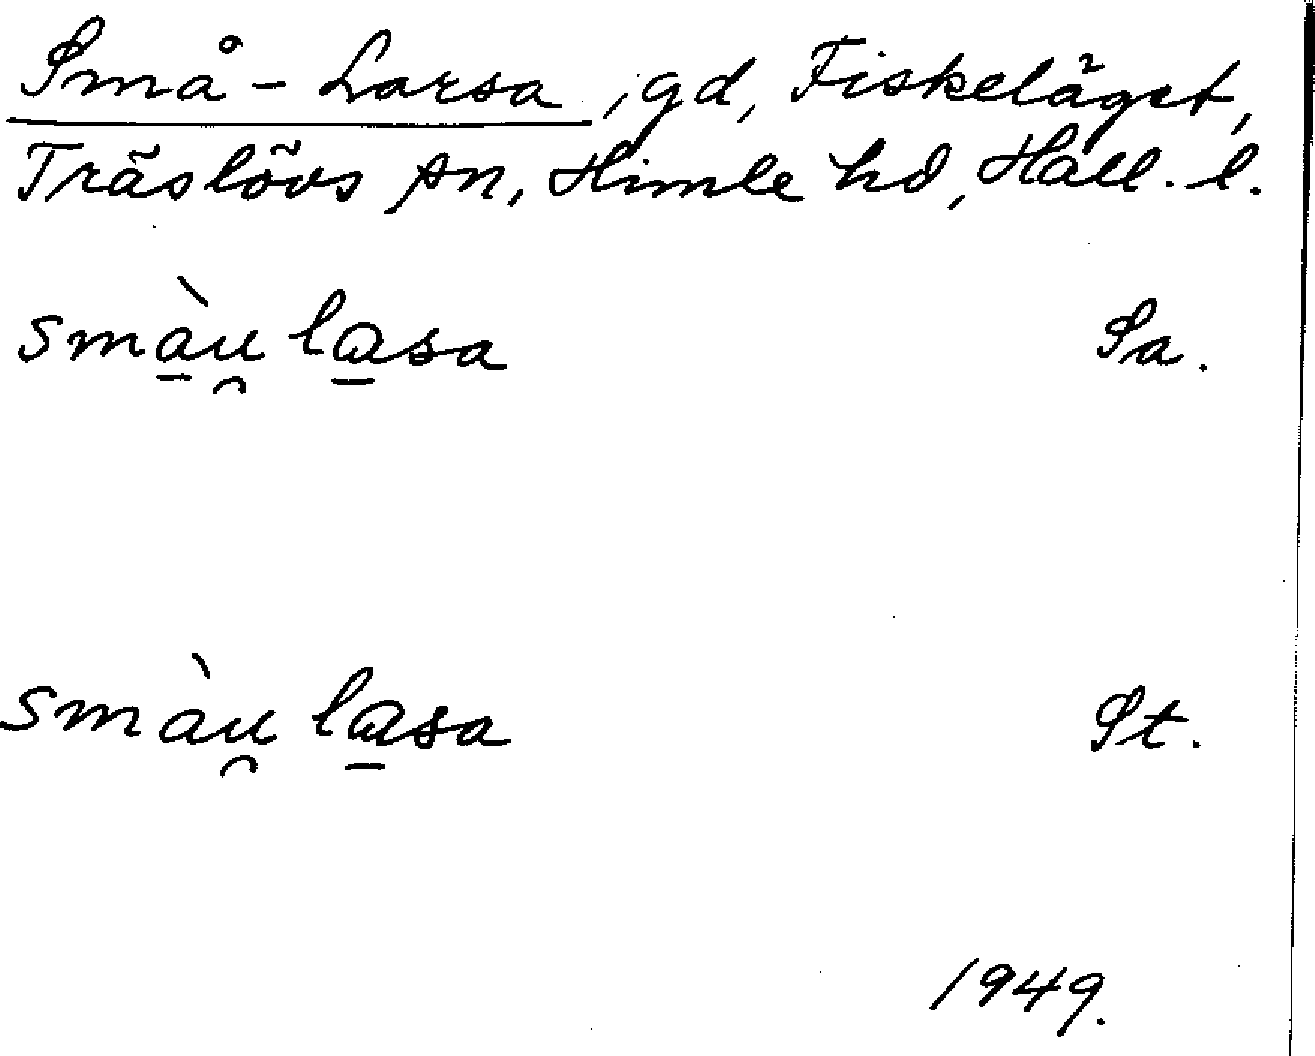 Små-Larsa, gd, Fiskeläget,
Träslövs sn, Himle hd, Hall. l.
smà̱u̯ la̱sa Sa.
smàu̯ la̱sa St.
1949.